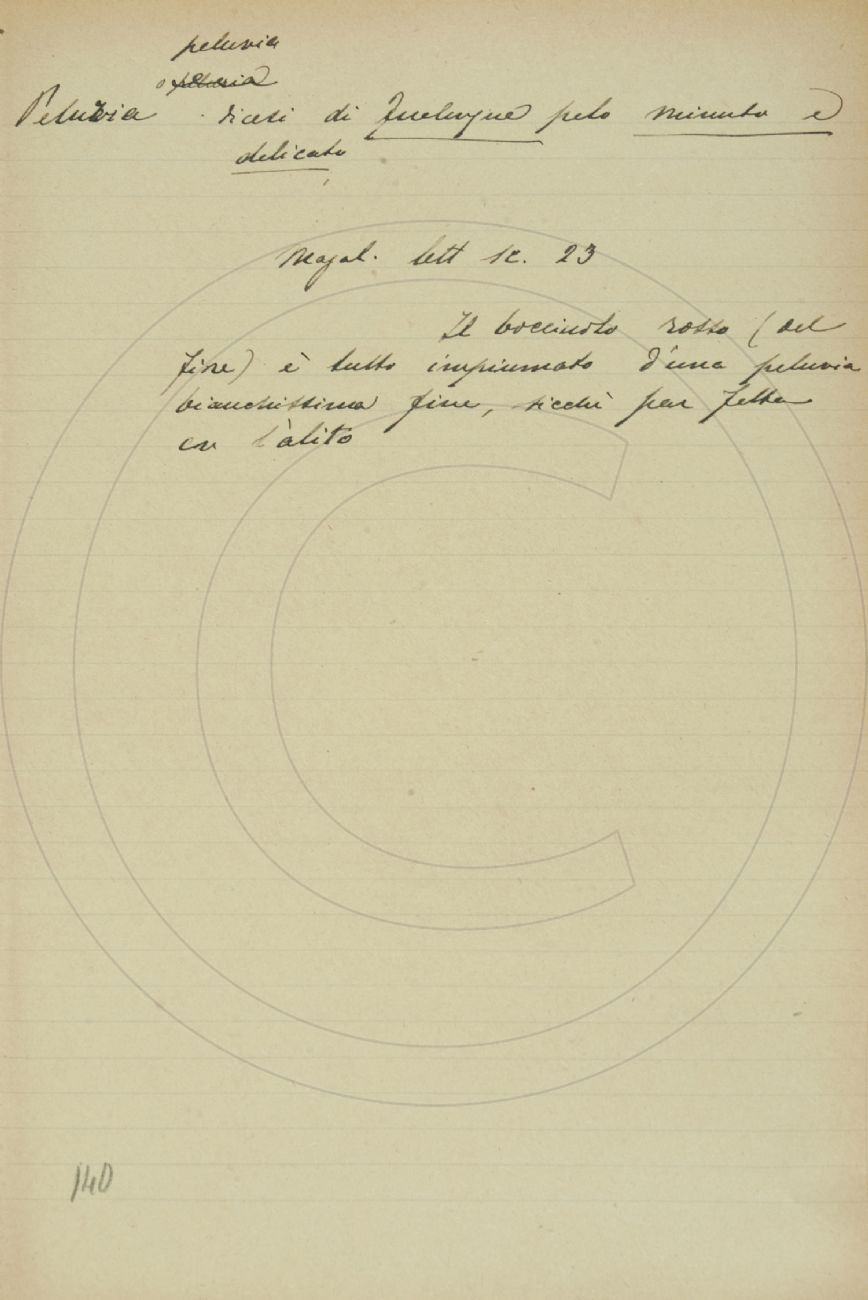 peluvia
o peluria
Peluvia dicesi di qualunque pelo minuto e
delicato
Magal. lett sc. 23
Il bocciuolo rosso (del
fiore) è tutto impiumato d'una peluvia
bianchissima fine, sicchè par fatta
con l'alito
140